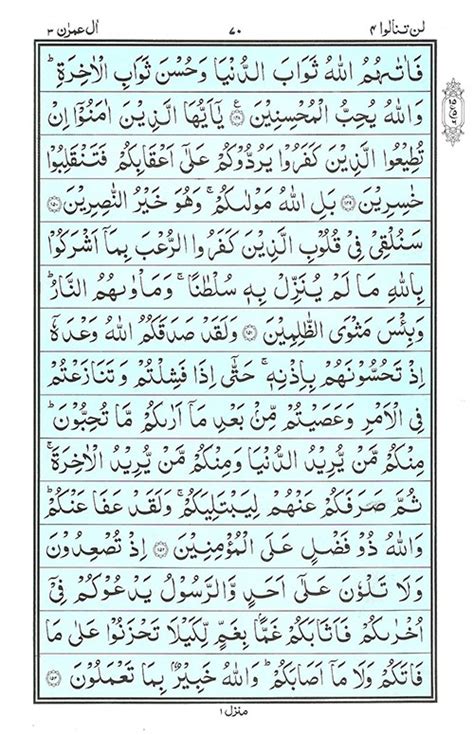 لن تنالوا ۴ ۷۰ ال عمرٰن ۳
فَاٰتٰىهُمُ اللّٰهُ ثَوَابَ الدُّنْيَا وَحُسْنَ ثَوَابِ الْاٰخِرَةِ ؕ
وَاللّٰهُ يُحِبُّ الْمُحْسِنِيْنَ ۝۱۴۸ يٰۤاَيُّهَا الَّذِيْنَ اٰمَنُوْۤا اِنْ
تُطِيْعُوا الَّذِيْنَ كَفَرُوْا يَرُدُّوْكُمْ عَلٰۤى اَعْقَابِكُمْ فَتَنْقَلِبُوْا
خٰسِرِيْنَ ۝۱۴۹ بَلِ اللّٰهُ مَوْلٰىكُمْ ۚ وَهُوَ خَيْرُ النّٰصِرِيْنَ ۝۱۵۰
سَنُلْقِيْ فِيْ قُلُوْبِ الَّذِيْنَ كَفَرُوا الرُّعْبَ بِمَاۤ اَشْرَكُوْا
بِاللّٰهِ مَا لَمْ يُنَزِّلْ بِهٖ سُلْطٰنًا ۚ وَمَاْوٰىهُمُ النَّارُ ؕ
وَبِئْسَ مَثْوَى الظّٰلِمِيْنَ ۝۱۵۱ وَلَقَدْ صَدَقَكُمُ اللّٰهُ وَعْدَهٗۤ
اِذْ تَحُسُّوْنَهُمْ بِاِذْنِهٖ ۚ حَتّٰۤى اِذَا فَشِلْتُمْ وَتَنَازَعْتُمْ
فِي الْاَمْرِ وَعَصَيْتُمْ مِّنْۢ بَعْدِ مَاۤ اَرٰىكُمْ مَّا تُحِبُّوْنَ ؕ
مِنْكُمْ مَّنْ يُّرِيْدُ الدُّنْيَا وَمِنْكُمْ مَّنْ يُّرِيْدُ الْاٰخِرَةَ ۚ
ثُمَّ صَرَفَكُمْ عَنْهُمْ لِيَبْتَلِيَكُمْ ۚ وَلَقَدْ عَفَا عَنْكُمْ ؕ
وَاللّٰهُ ذُوْ فَضْلٍ عَلَى الْمُؤْمِنِيْنَ ۝۱۵۲ اِذْ تُصْعِدُوْنَ
وَلَا تَلْوٗنَ عَلٰۤى اَحَدٍ وَّالرَّسُوْلُ يَدْعُوْكُمْ فِيْۤ
اُخْرٰىكُمْ فَاَثَابَكُمْ غَمًّۢا بِغَمٍّ لِّكَيْلَا تَحْزَنُوْا عَلٰى مَا
فَاتَكُمْ وَلَا مَاۤ اَصَابَكُمْ ؕ وَاللّٰهُ خَبِيْرٌۢ بِمَا تَعْمَلُوْنَ ۝۱۵۳
منزل ۱